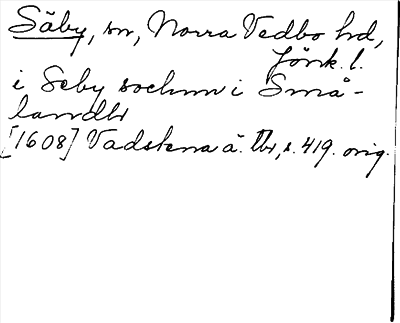 Säby, sn, Norra Vedbo hd,
Jönk. l.
i Seby sochnn i Små-
landh
[1608] Vadstena ä. Tb, s. 419. orig.